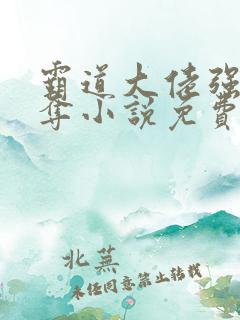 霸道大佬强
夺小说免費
北蕪
未经同意禁止转载